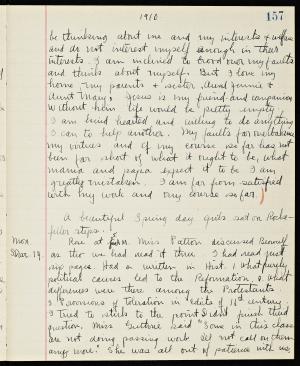 1910
157
be thinking about me and my interests & welfare
and do not interest myself enough in their
interests. I am inclined to brood over my faults
and think about myself. But I love my
home, my parents & sister, Aunt Jennie &
Aunt Mary. Jesus is my friend and companion
Without him life would be pretty empty.
I am kind hearted and willing to do anything
I can to help another. My faults far overbalance
my virtues and if my course so far has not
been far short of what it ought to be, what
mama and papa expect it to be I am
greatly mistaken. I am far from satisfied
with my work and my course so far.
A beautiful Spring day. Girls sat on Rocke-
feller steps.
Mon.
Mar 14.
Rose at Miss Patton discussed Beowulf
as tho' we had read it thro. I had read just
six pages. Had a written in Hist. 1 what purely
political causes led to the Reformation, 2 what
differences were there among the Protestants
3 Provisions of Toleration in Edicts of 16th century.
I tried to stick to the point & didn't finish third
question. Miss Guthrie said "Some in this class
are not doing passing work & I'll not call on them
any more." She was all out of patience with us,